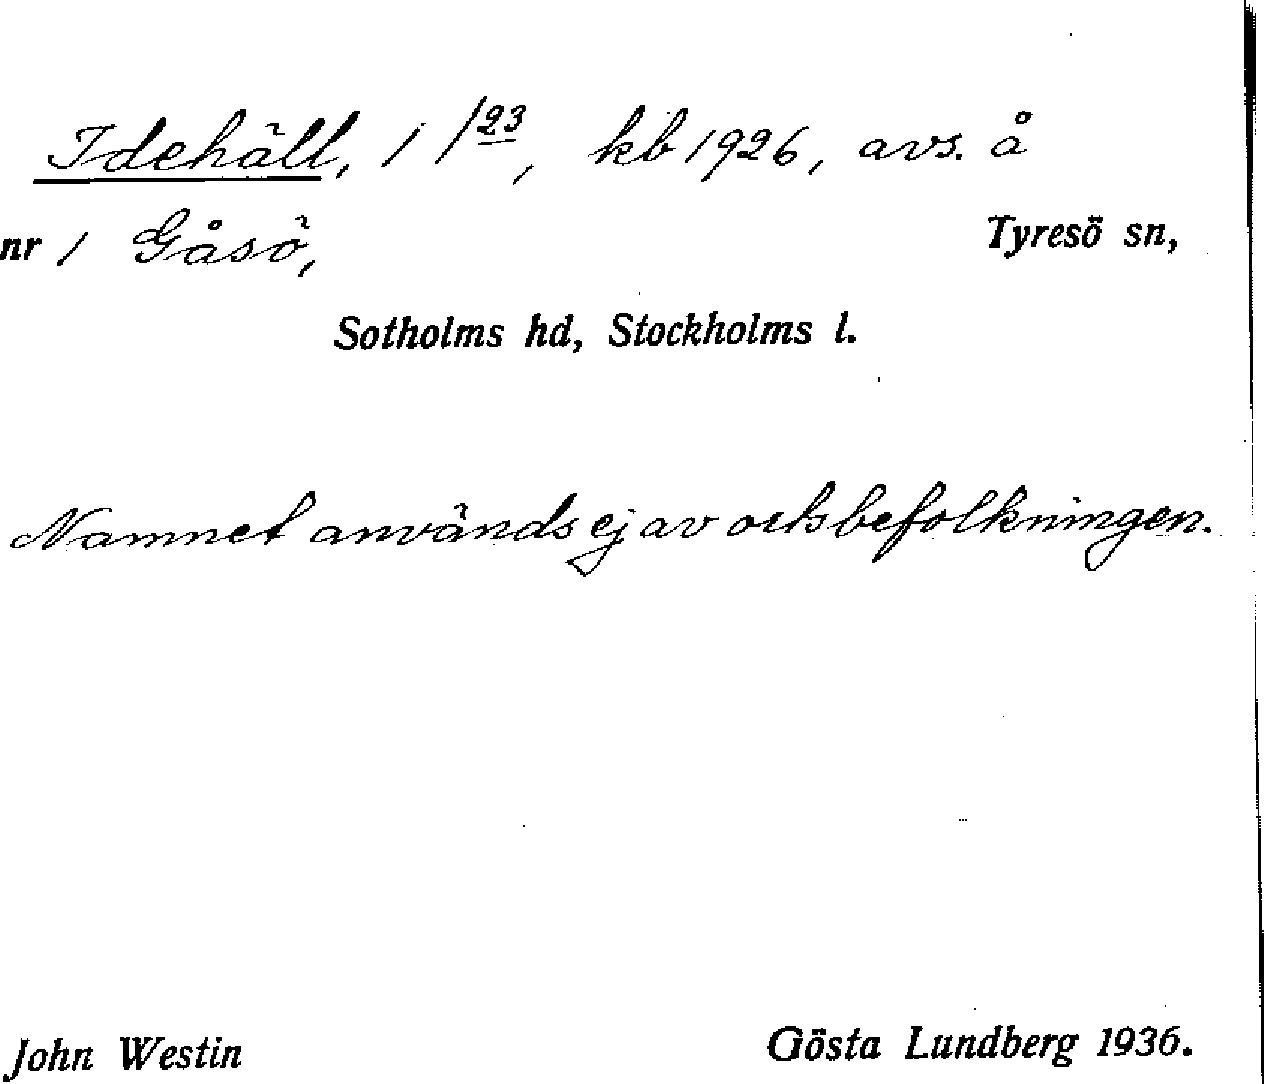 Idehäll, 1/23, kb 1926, avs. å
nr 1 Gåsö, Tyresö sn,
Sotholms hd, Stockholms l.
Namnet användes ej av ortsbefolkningen.
John Westin Gösta Lundberg 1936.